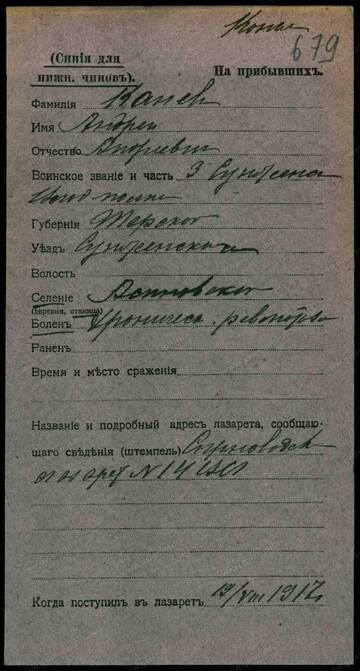 679
(Синія для
нижн. чиновъ).
На прибывшихъ.
Фамилія Канев
Имя Андрей
Отчество Андреевич
Воинское званіе и часть 3 Сунжен
полка
Губернія Терской
Уѣздъ Сунженской
Волость
Селеніе
(деревня, станица)
Боленъ Хроническ.
Раненъ
Время и мѣсто сраженія
Названіе и подробный адресъ лазарета, сообщаю-
щаго свѣдѣнія (штемпель) Серноводск
лазарет N 14
Когда поступилъ въ лазаретъ 19/VIII 1917 г.